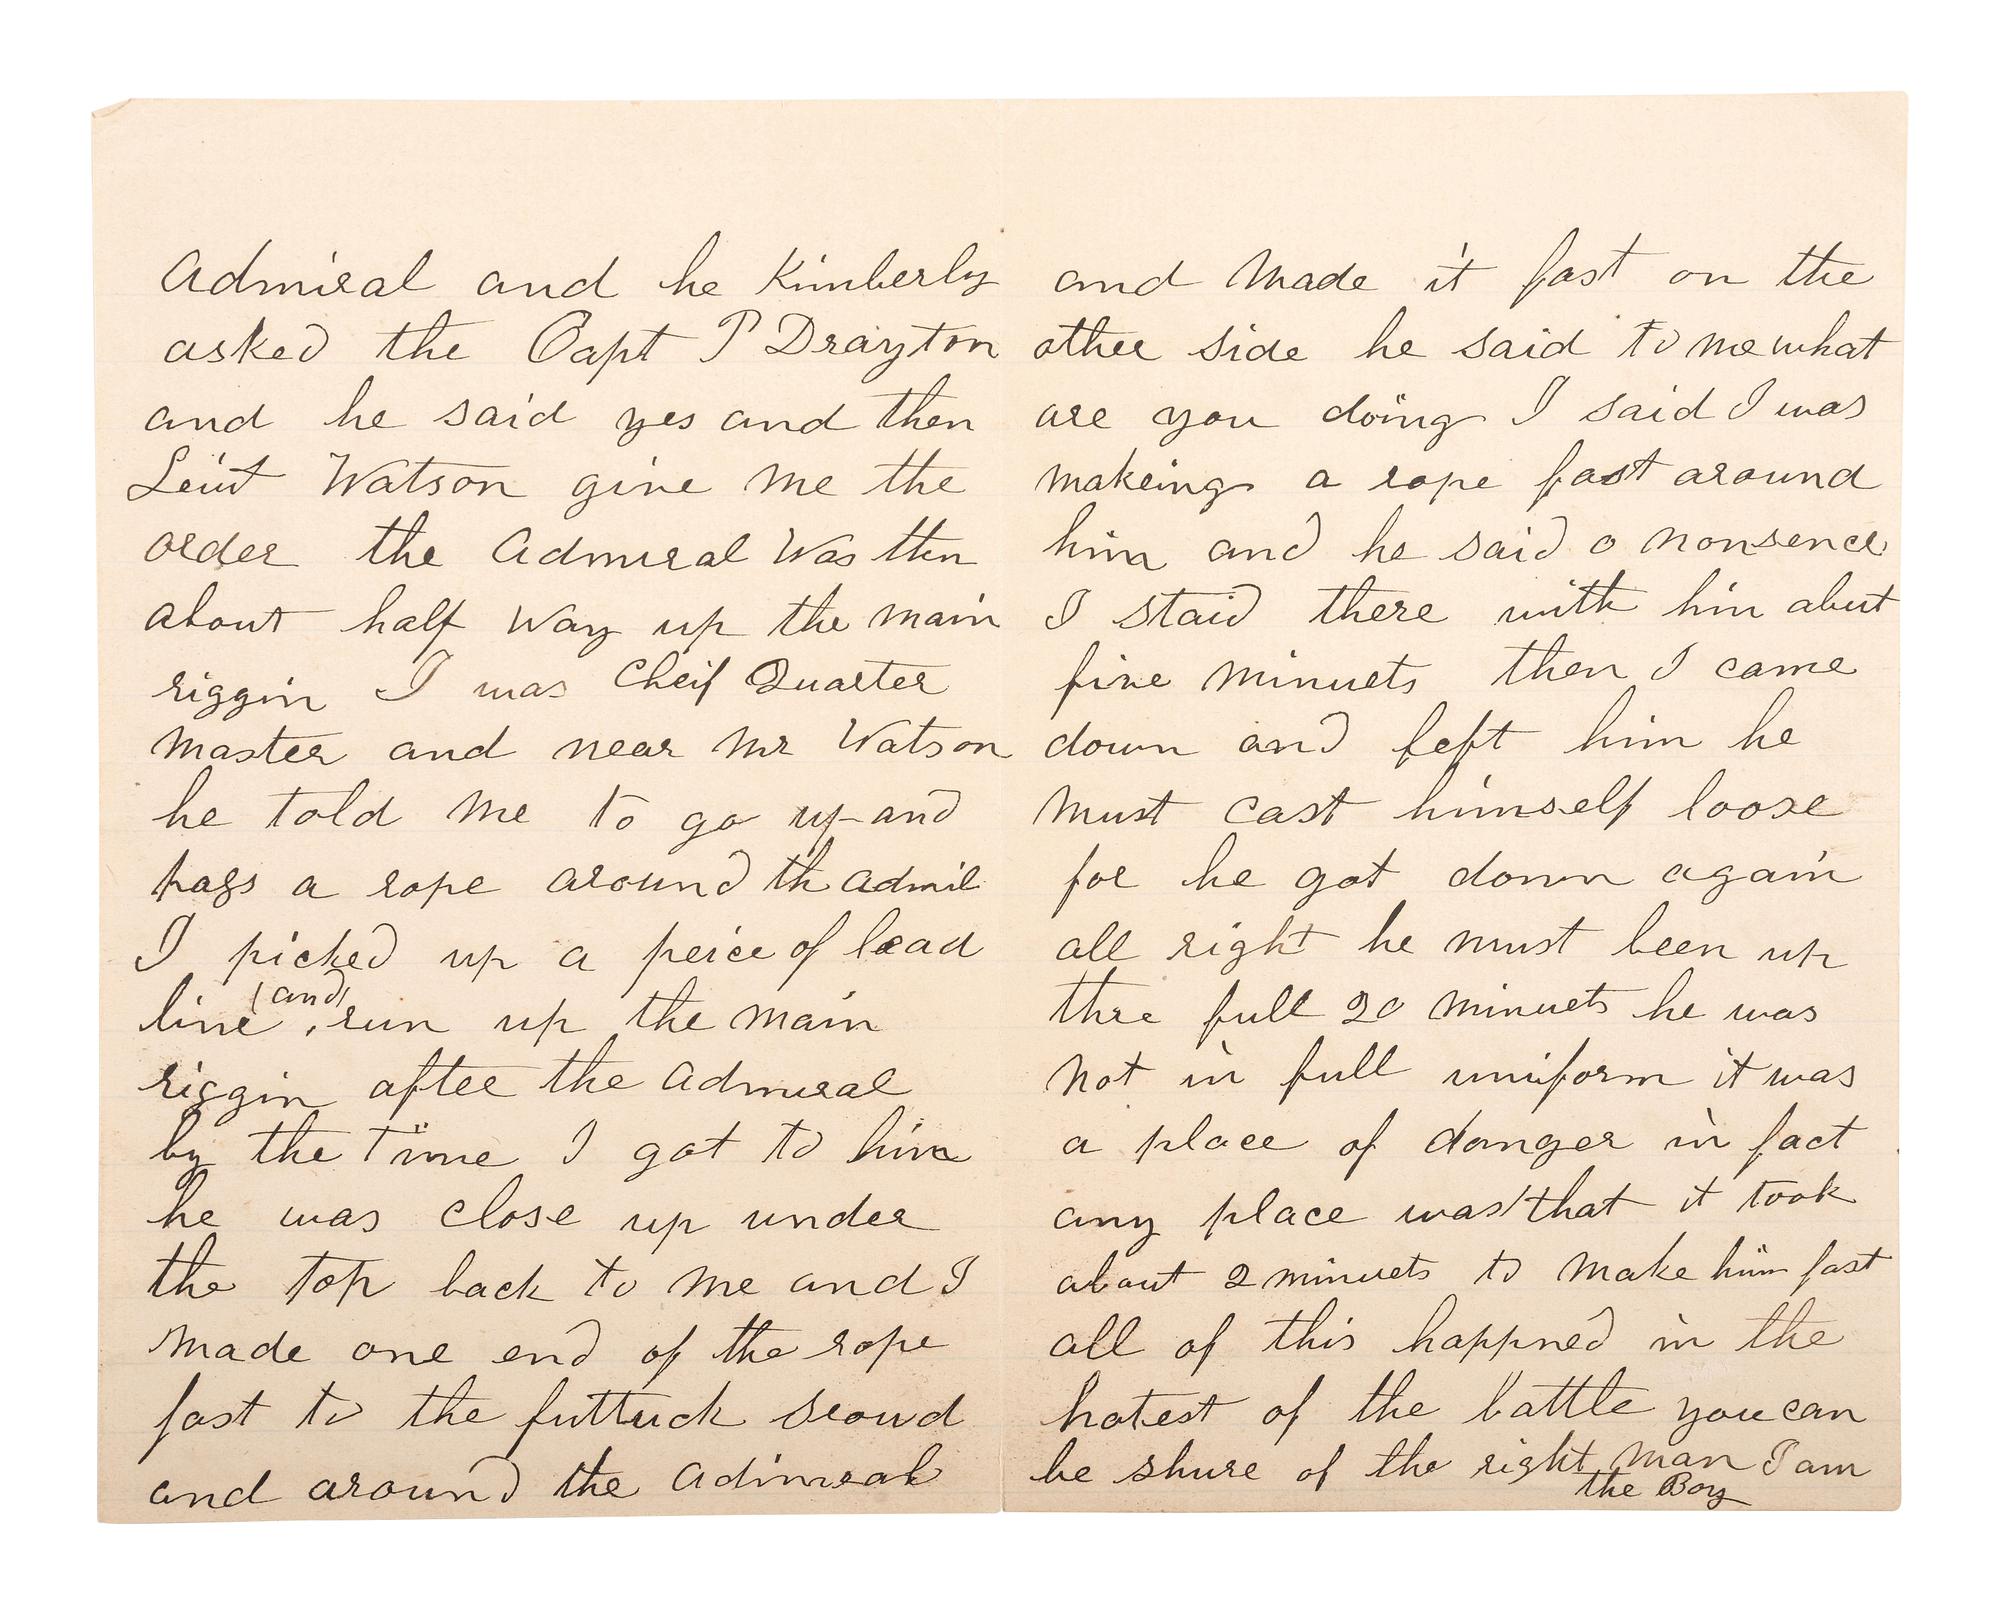 Admiral and he Kimberly
asked the Capt P Drayton
and he said yes and then
Leiut Watson give me the
order the Admiral Was then
about half Way up the main
riggin I was Cheif Quarter
Master and near Mr Watson
he told me to go up and
pass a rope around th Admil
I picked up a peice of lead
line (and) run up the main
riggin after the Admiral
by the Time I got to him
he was close up under
the top back to me and I
made one end of the rope
fast to the futtuck sroud
and around the Admiral
and Made it fast on the
other side he said to me what
are you doing I said I was
makeing a rope fast around
him and he said o nonsence
I staid there with him abut
five minuets then I came
down and left him he
must cast himself loose
for he got down again
all right he must been up
thre full 20 minuets he was
not in full uniform it was
a place of danger in fact
any place was that it took
about 2 minuets to make him fast
all of this happned in the
hotest of the battle you can
be shure of the right man I am
the Boy